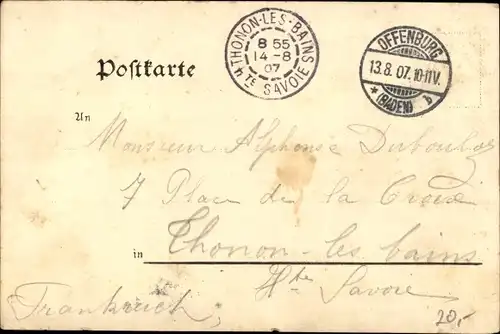 THONON-LES-BAINS
8 55
14-8
07
Hte SAVOIE
OFFENBURG
13.8.07.10-11V.
* (BADEN) b
Postkarte
An
Monsieur Alphonse
7 Place de la Croix
in Thonon-les bains
Hte Savoie
Frankreich,
20,-